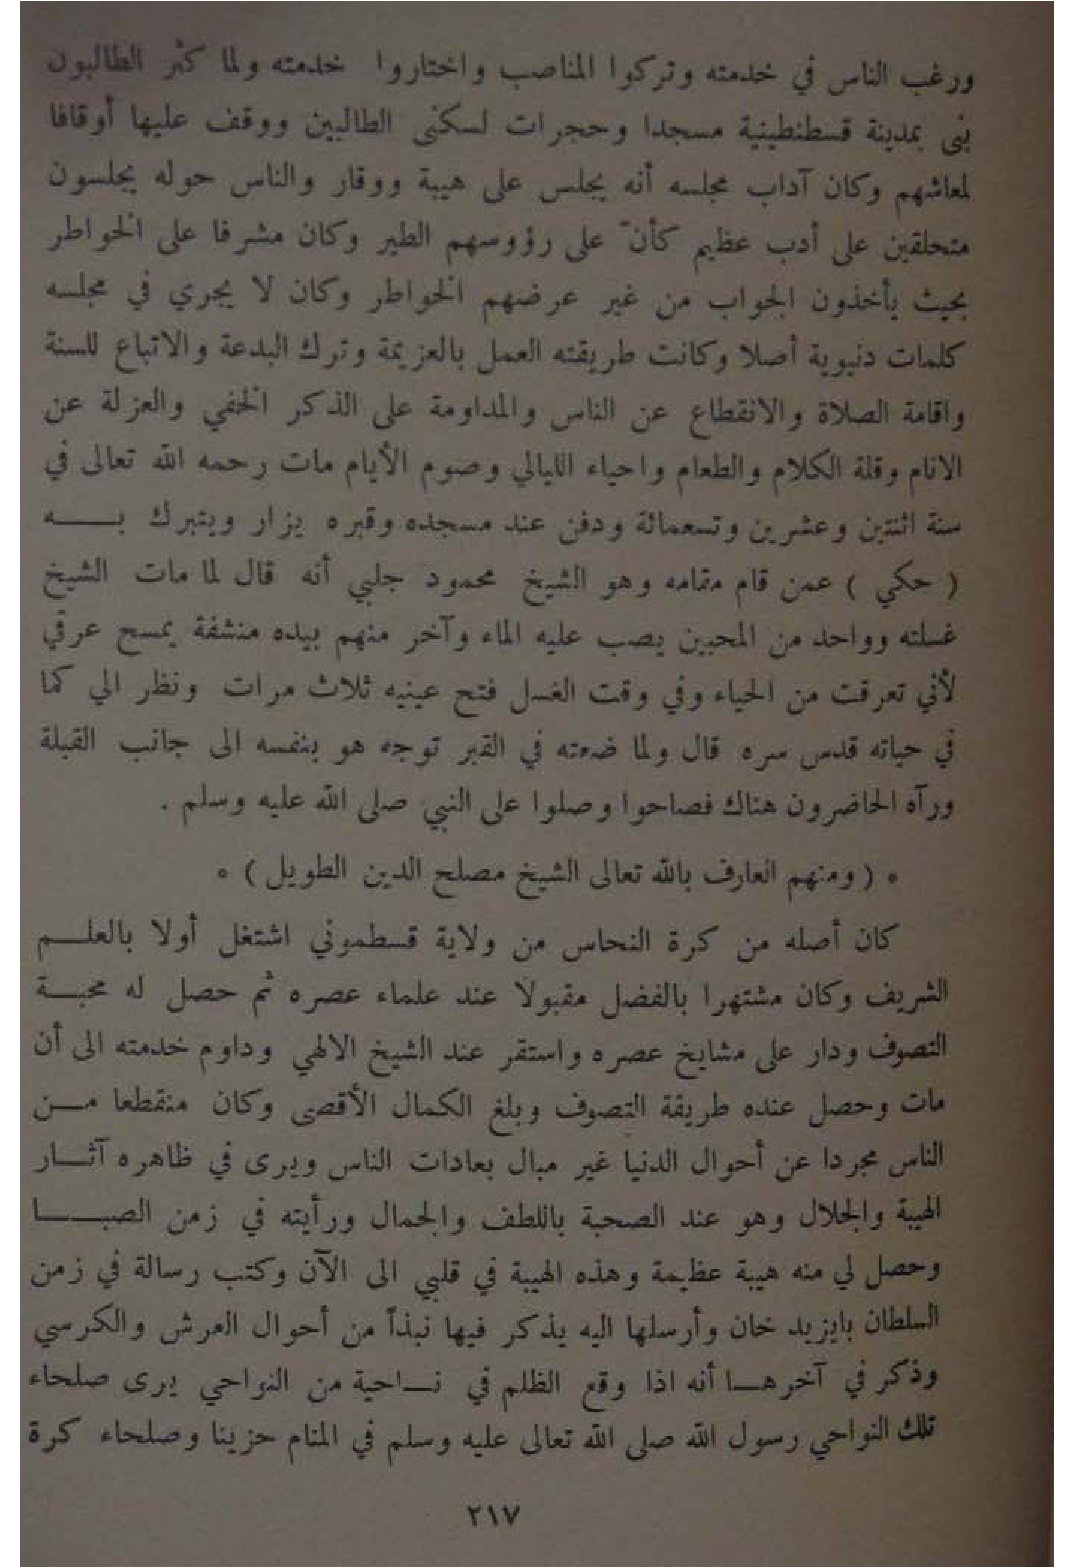 ورغب الناس في خدمته وتركوا المناصب واختاروا خدمته ولما كثر الطالبون
بنى بمدينة قسطنطينية مسجدا وحجرات لسكنى الطالبين ووقف عليها أوقافا
لمعاشهم وكان آداب مجلسه أنه يجلس على هيبة ووقار والناس حوله يجلسون
متحلقين على أدب عظيم كأنّ على رؤوسهم الطير وكان مشرفا على الخواطر
بحيث يأخذون الجواب من غير عرضهم الخواطر وكان لا يجري في مجلسه
كلمات دنيوية أصلا وكانت طريقته العمل بالعزيمة وترك البدعة والاتباع للسنة
واقامة الصلاة والانقطاع عن الناس والمداومة على الذكر الخفي والعزلة عن
الانام وقلة الكلام والطعام واحياء الليالي وصوم الأيام مات رحمه الله تعالى في
سنة اثنتين وعشرين وتسعمائة ودفن عند مسجده وقبره يزار ويتبرك بــه
( حكي ) عمن قام مقامه وهو الشيخ محمود جلبي أنه قال لما مات الشيخ
غسلته وواحد من المحبين يصب عليه الماء وآخر منهم بيده منشفة يمسح عرقي
لأني تعرقت من الحياء وفي وقت الغسل فتح عينيه ثلاث مرات ونظر الي كما
في حياته قدس سره قال ولما ضعته في القبر توجه هو بنفسه الى جانب القبلة
ورآه الحاضرون هناك فصاحوا وصلوا على النبي صلى الله عليه وسلم .
* ( ومنهم العارف بالله تعالى الشيخ مصلح الدين الطويل ) *
كان أصله من كرة النحاس من ولاية قسطموني اشتغل أولا بالعلــم
الشريف وكان مشتهرا بالفضل مقبولا عند علماء عصره ثم حصل له محبــة
التصوف ودار على مشايخ عصره واستقر عند الشيخ الالهي وداوم خدمته الى أن
مات وحصل عنده طريقة التصوف وبلغ الكمال الأقصى وكان منقطعا مــن
الناس مجردا عن أحوال الدنيا غير مبال بعادات الناس ويرى في ظاهره آثــار
الهيبة والجلال وهو عند الصحبة باللطف والجمال ورأيته في زمن الصبــا
وحصل لي منه هيبة عظيمة وهذه الهيبة في قلبي الى الآن وكتب رسالة في زمن
السلطان بايزيد خان وأرسلها اليه يذكر فيها نبذاً من أحوال العرش والكرسي
وذكر في آخرهــا أنه اذا وقع الظلم في نــاحية من النواحي يرى صلحاء
تلك النواحي رسول الله صلى الله تعالى عليه وسلم في المنام حزينا وصلحاء كرة
٢١٧